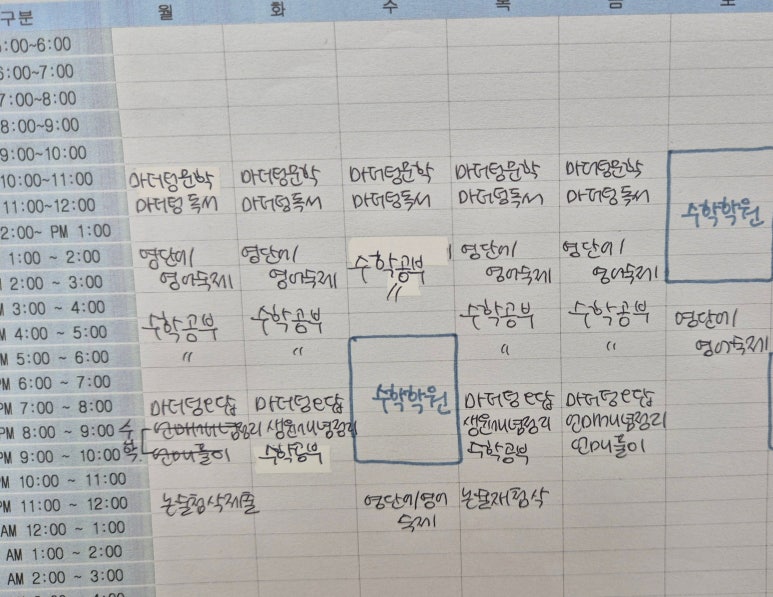 구분 월 화 수 목 금 토
5:00~6:00
6:00~7:00
7:00~8:00
8:00~9:00
9:00~10:00
10:00~11:00 마더텅문학 마더텅문학 마더텅문학 마더텅문학 마더텅문학
11:00~12:00 마더텅독서 마더텅독서 마더텅독서 마더텅독서 마더텅독서 수학학원
2:00~ PM 1:00
1:00 ~ 2:00 영단어/ 영단어/ 수학공부 영단어/ 영단어/
2:00 ~ 3:00 영어숙제 영어숙제 〃 영어숙제 영어숙제
M 3:00 ~ 4:00 수학공부 수학공부 수학공부 수학공부 영단어/
M 4:00 ~ 5:00 〃 〃 〃 〃 영어숙제
PM 5:00 ~ 6:00
PM 6:00 ~ 7:00
PM 7:00 ~ 8:00 마더텅e답 마더텅e답 수학학원 마더텅e답 마더텅e답
PM 8:00 ~ 9:00 수학 생윤개념정리 생윤개념정리
PM 9:00 ~ 10:00 수학공부 수학공부
PM 10:00 ~ 11:00
PM 11:00 ~ 12:00 논술첨삭제출 영단어/영어 논술재첨삭
AM 12:00 ~ 1:00 숙제
AM 1:00 ~ 2:00
AM 2:00 ~ 3:00